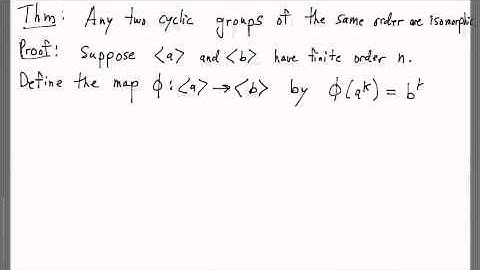 Thm: Any two cyclic groups of the same order are isomorphic
Proof: Suppose <a> and <b> have finite order n.
Define the map ϕ: <a> → <b> by ϕ(aᵏ) = bᵏ